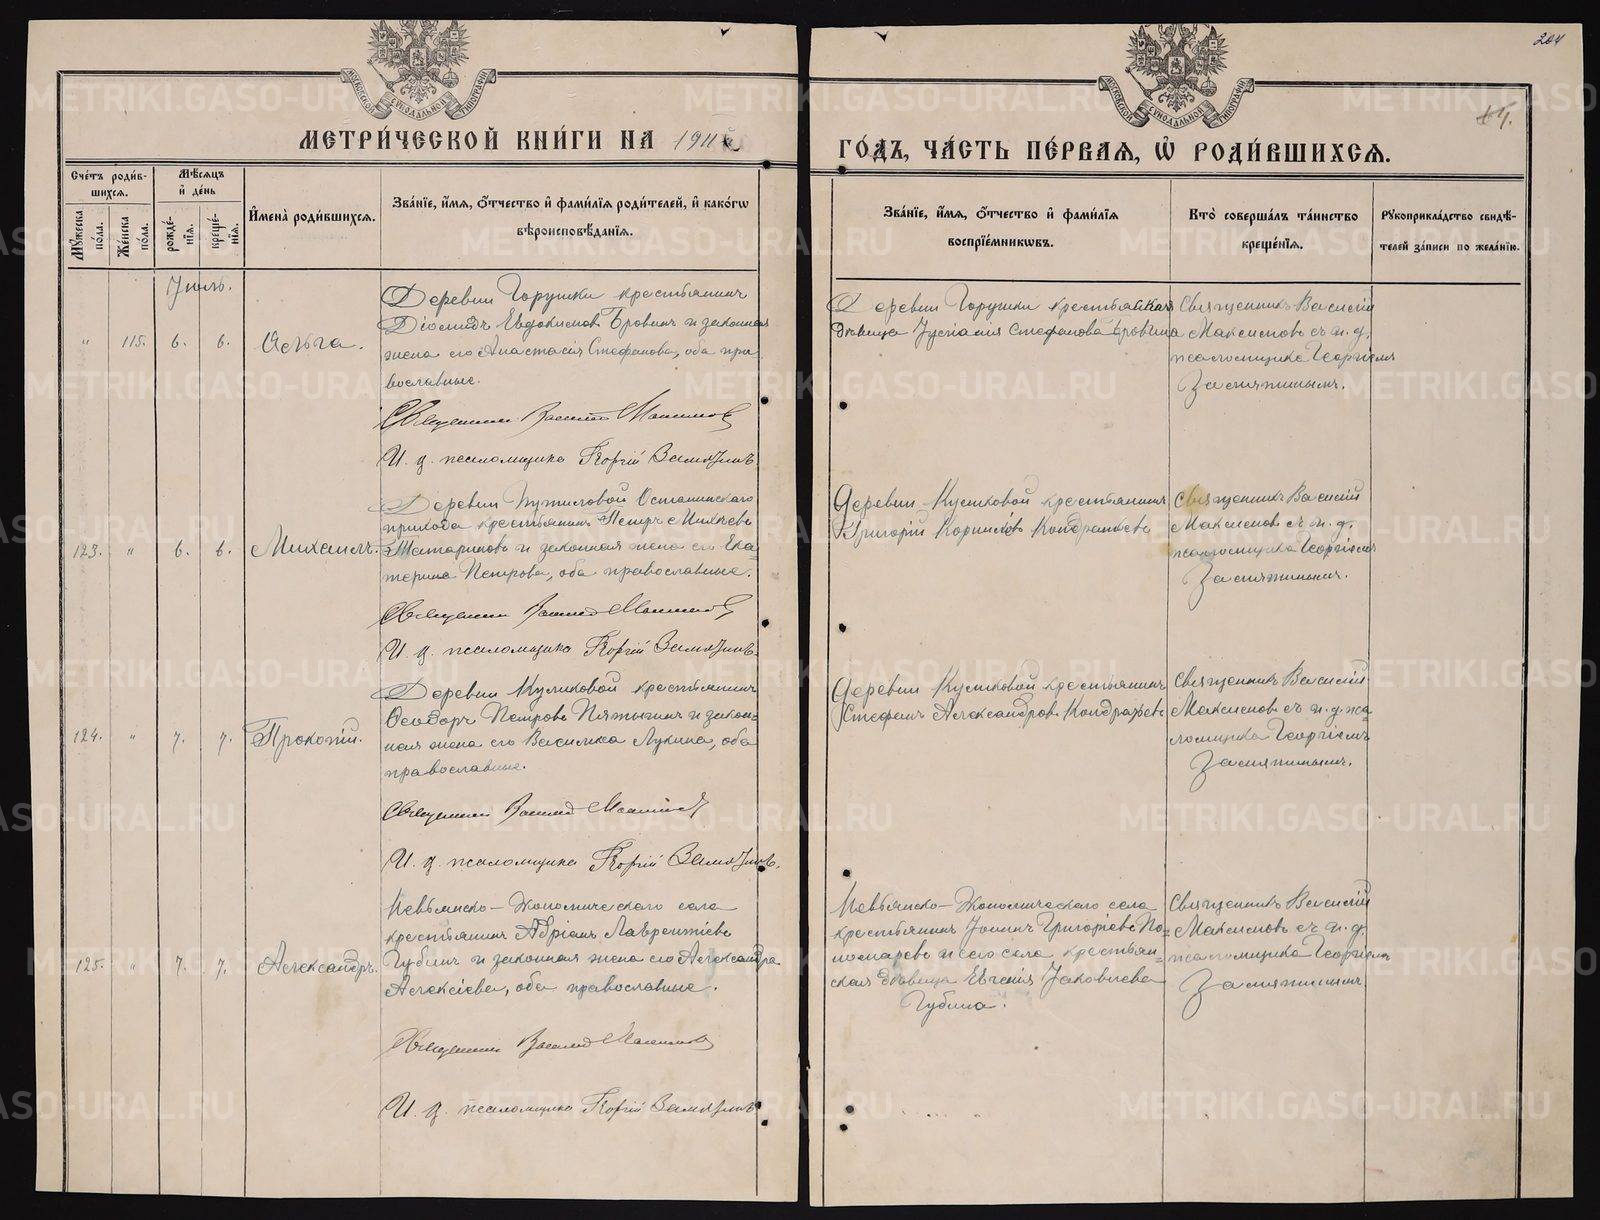 204
45.
МОСКОВСКОЙ СѴНОДАЛЬНОЙ ТИПОГРАФІИ
МОСКОВСКОЙ СѴНОДАЛЬНОЙ ТИПОГРАФІИ
МЕТРИ́ЧЕСКОЙ КНИ́ГИ НА 1911
ГО́ДЪ, ЧА́СТЬ ПЕ́РВАЯ, Ѡ РОДИ́ВШИХСЯ.
Сче́тъ роди́в-
шихся.
Му́жеска по́ла.
Же́нска по́ла.
Мѣ́сяцъ
и҆ де́нь
рожде́-
нїя.
креще́-
нїя.
И҆мена̀ роди́вшихся.
Зва́нїе, и҆́мя, о҆́тчество и҆ фами́лїя роди́телей, и҆ како́гѡ
вѣроисповѣ́данїя.
Зва́нїе, и҆́мя, о҆́тчество и҆ фами́лїя
воспрїе́мникѡвъ.
Кто̀ соверша́лъ та́инство
креще́нїя.
Рꙋкоприкла́дство свидѣ́-
телей за́писи по жела́нїю.
Іюль.
" 115. 6. 6. Ольга.
Деревни Горушки крестьянинъ
Діомидъ Евдокимовъ Бровинъ и законная
жена его Анастасія Стефанова, оба пра-
вославные.
Священникъ Василій Максимовъ
И. д. псаломщика Георгій Замятинъ
Деревни Горушки крестьянская
дѣвица Іустинія Стефанова Бровина
Священникъ Василій
Максимовъ съ и. д.
псаломщика Георгіемъ
Замятинымъ.
123. " 6. 6. Михаилъ.
Деревни Путиловой Останинскаго
прихода крестьянинъ Петръ Михѣевъ
Татариновъ и законная жена его Ека-
терина Петрова, оба православные.
Священникъ Василій Максимовъ
И. д. псаломщика Георгій Замятинъ.
Деревни Куликовой крестьянинъ
Григорій Корниловъ Кондратьевъ
Священникъ Василій
Максимовъ съ и. д.
псаломщика Георгіемъ
Замятинымъ.
124. " 7. 7. Прокопій.
Деревни Куликовой крестьянинъ
Ѳеодоръ Петровъ Пятыгинъ и закон-
ная жена его Василиса Лукина, оба
православные.
Священникъ Василій Максимовъ
И. д. псаломщика Георгій Замятинъ.
Деревни Куликовой крестьянинъ
Стефанъ Александровъ Кондратьевъ
Священникъ Василій
Максимовъ съ и. д. пса-
ломщика Георгіемъ
Замятинымъ.
125. " 7. 7. Александръ.
Невьянско-Экономическаго села
крестьянинъ Адріанъ Лаврентіевъ
Губинъ и законная жена его Александра
Алексіева, оба православные.
Священникъ Василій Максимовъ
И. д. псаломщика Георгій Замятинъ
Невьянско-Экономическаго села
крестьянинъ Іоаннъ Григоріевъ По-
номаревъ и сего села крестьян-
ская дѣвица Евгенія Іаковлева
Губина.
Священникъ Василій
Максимовъ съ и. д.
псаломщика Георгіемъ
Замятинымъ
METRIKI.GASO-URAL.RU